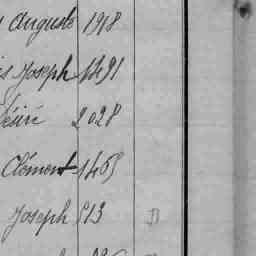 Auguste 1918
Joseph 1491
Désiré 2028
Clément 1465
Joseph 513